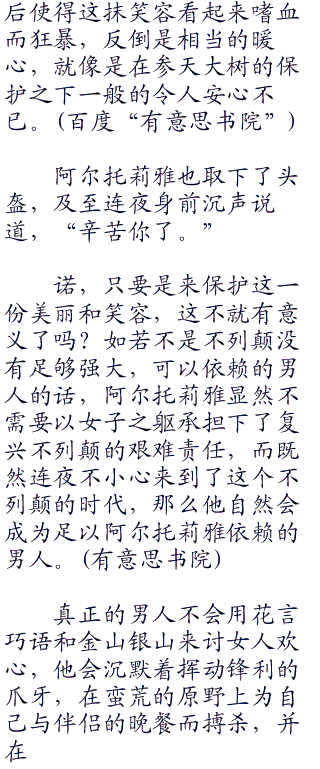 后使得这抹笑容看起来嗜血
而狂暴，反倒是相当的暖
心，就像是在参天大树的保
护之下一般的令人安心不
已。(百度“有意思书院”)
阿尔托莉雅也取下了头
盔，及至连夜身前沉声说
道，“辛苦你了。”
诺，只要是来保护这一
份美丽和笑容，这不就有意
义了吗？如若不是不列颠没
有足够强大，可以依赖的男
人的话，阿尔托莉雅显然不
需要以女子之躯承担下了复
兴不列颠的艰难责任，而既
然连夜不小心来到了这个不
列颠的时代，那么他自然会
成为足以阿尔托莉雅依赖的
男人。(有意思书院)
真正的男人不会用花言
巧语和金山银山来讨女人欢
心，他会沉默着挥动锋利的
爪牙，在蛮荒的原野上为自
己与伴侣的晚餐而搏杀，并
在